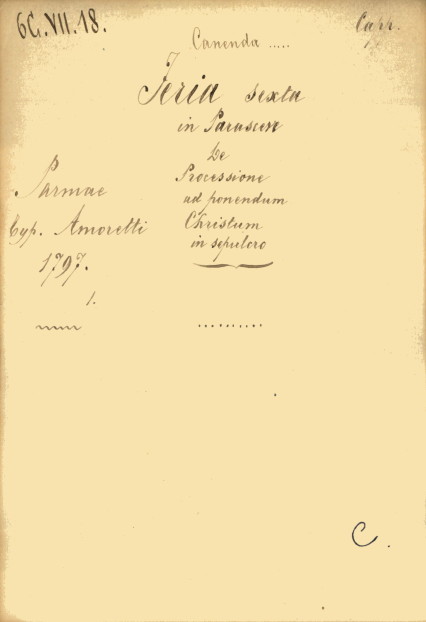 6G.VII.18.
Capr.
Canenda .....
Feria Sexta
in Parascev
De
Processione
ad ponendum
Christum
in sepulcro
Parmae
Typ. Amoretti
1797.
1.
C.